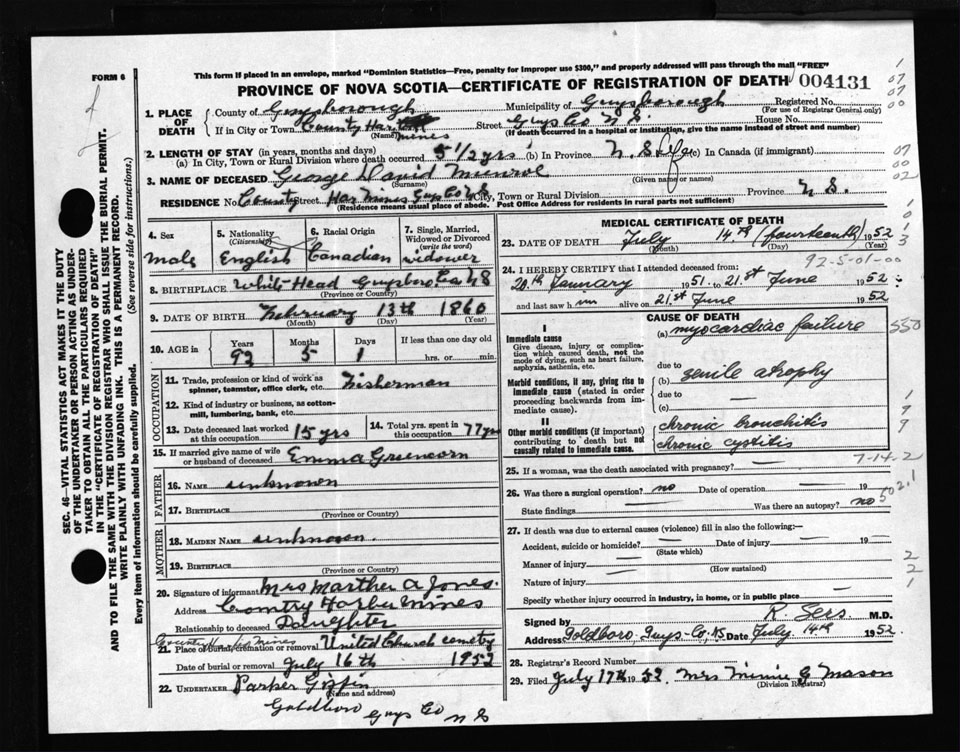 This form if placed in an envelope, marked "Dominion Statistics—Free, penalty for improper use $300," and properly addressed will pass through the mail "FREE"
FORM 6
PROVINCE OF NOVA SCOTIA—CERTIFICATE OF REGISTRATION OF DEATH 004131
1. PLACE OF DEATH
County of Guysborough Municipality of Guysborough Registered No.
(For use of Registrar General only)
If in City or Town Country Har mines Street Guys Co N.S. House No.
(Name) (If death occurred in a hospital or institution, give the name instead of street and number)
2. LENGTH OF STAY (in years, months and days)
(a) In City, Town or Rural Division where death occurred 5 1/2 yrs (b) In Province N.S. Life (c) In Canada (if immigrant)
3. NAME OF DECEASED George David Munroe
(Surname) (Given name or names)
RESIDENCE No. Country Street Har Mines Guys Co N.S. City, Town or Rural Division Province N.S.
(Residence means usual place of abode. Post Office Address for residents in rural parts not sufficient)
4. Sex male
5. Nationality (Citizenship) English
6. Racial Origin Canadian
7. Single, Married, Widowed or Divorced (write the word) widower
8. BIRTHPLACE White Head Guysboro Co N S
(Province or Country)
9. DATE OF BIRTH February 13th 1860
(Month) (Day) (Year)
10. AGE in Years 92 Months 5 Days 1 If less than one day old hrs. or min.
OCCUPATION
11. Trade, profession or kind of work as spinner, teamster, office clerk, etc. Fisherman
12. Kind of industry or business, as cotton-mill, lumbering, bank, etc.
13. Date deceased last worked at this occupation 15 yrs
14. Total yrs. spent in this occupation 77 yrs
15. If married give name of wife or husband of deceased Emma Greencorn
FATHER
16. NAME unknown
17. BIRTHPLACE
(Province or Country)
MOTHER
18. MAIDEN NAME unknown.
19. BIRTHPLACE
(Province or Country)
20. Signature of informant Mrs Marther A Jones.
Address Country Harbor Mines
Relationship to deceased Daughter
21. Place of burial, cremation or removal United Church cemetry
Date of burial or removal July 16th 1952
22. UNDERTAKER Parker Giffin
(Name and address)
Goldboro Guys Co N S
MEDICAL CERTIFICATE OF DEATH
23. DATE OF DEATH July 14th (fourteenth) 1952
(Month) (Day) (Year)
92-5-01-00
24. I HEREBY CERTIFY that I attended deceased from:
20th January 1951 to 21st June 1952
and last saw him alive on 21st June 1952
CAUSE OF DEATH
I
Immediate cause
Give disease, injury or complication which caused death, not the mode of dying, such as heart failure, asphyxia, asthenia, etc.
(a) myocardiac failure 550
due to
Morbid conditions, if any, giving rise to immediate cause (stated in order proceeding backwards from immediate cause).
(b) senile atrophy
due to
(c) —
II
Other morbid conditions (if important) contributing to death but not causally related to immediate cause.
chronic bronchitis
chronic cystitis
7-14-2
25. If a woman, was the death associated with pregnancy? —
26. Was there a surgical operation? no Date of operation — 19
State findings — Was there an autopsy? no
502.1
27. If death was due to external causes (violence) fill in also the following:—
Accident, suicide or homicide? — Date of injury — 19 —
(State which)
Manner of injury —
(How sustained)
Nature of injury —
Specify whether injury occurred in industry, in home, or in public place —
Signed by R. Sers M.D.
Address Goldboro, Guys-Co, N.S. Date July. 14th 1952.
28. Registrar's Record Number
29. Filed July 17th 1952. Mrs Minnie G Mason
(Division Registrar)
SEC. 46—VITAL STATISTICS ACT MAKES IT THE DUTY
OF THE UNDERTAKER OR PERSON ACTING AS UNDER-
TAKER TO OBTAIN ALL THE PARTICULARS REQUIRED
IN THE "CERTIFICATE OF REGISTRATION OF DEATH"
AND TO FILE THE SAME WITH THE DIVISION REGISTRAR WHO SHALL ISSUE THE BURIAL PERMIT.
WRITE PLAINLY WITH UNFADING INK. THIS IS A PERMANENT RECORD.
Every item of information should be carefully supplied. (See reverse side for instructions.)